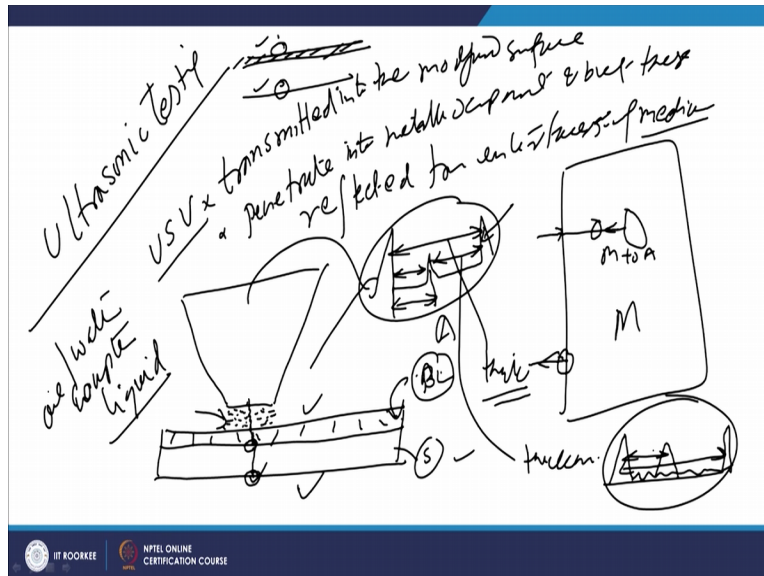 Ultrasonic testing
USV x transmitted into the modified surface
penetrate into metallic component & but these
reflected from interfaces of media
M to A
M
oil/water
couple
liquid
A
BL
S
thick
thickn.
IIT ROORKEE
NPTEL ONLINE
CERTIFICATION COURSE